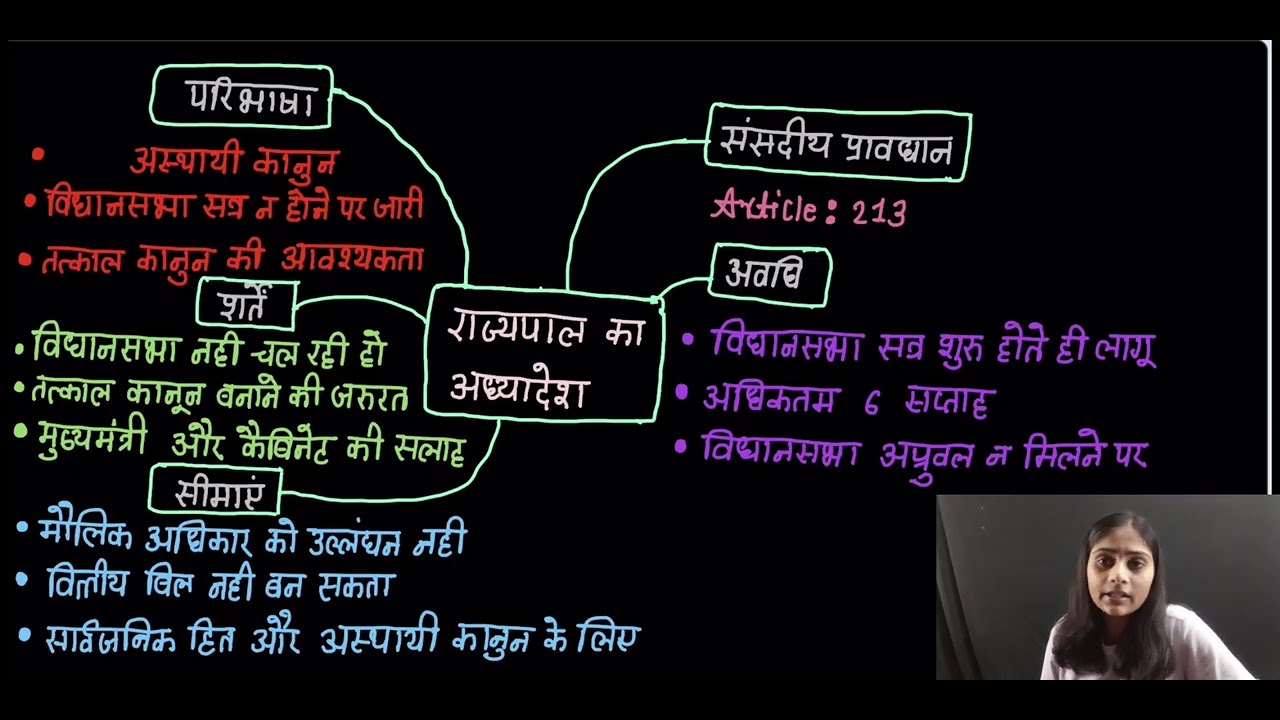 परिभाषा
• अस्थायी कानुन
• विधानसभा सत्र न होने पर जारी
• तत्काल कानुन की आवश्यकता
शर्तें
• विधानसभा नही चल रही हो
• तत्काल कानून बनाने की जरुरत
• मुख्यमंत्री और कैबिनेट की सलाह
सीमाएं
• मौलिक अधिकार को उल्लंघन नही
• वित्तीय बिल नही बन सकता
• सार्वजनिक हित और अस्थायी कानुन के लिए
राज्यपाल का
अध्यादेश
संसदीय प्रावधान
Article: 213
अवधि
• विधानसभा सत्र शुरु होते ही लागू
• अधिकतम 6 सप्ताह
• विधानसभा अप्रुवल न मिलने पर